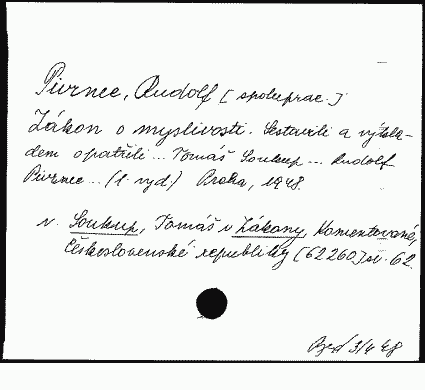 Pivrnec, Rudolf [spoluprac.]
Zákon o myslivosti. Sestavili a výkla-
dem opatřili ... Tomáš Soukup ... Rudolf
Pivrnec ... (1. vyd.) Praha, 1948.
v. Soukup, Tomáš v Zákony, Komentované,
Československé republiky [62260] sv. 62.
3/4 48